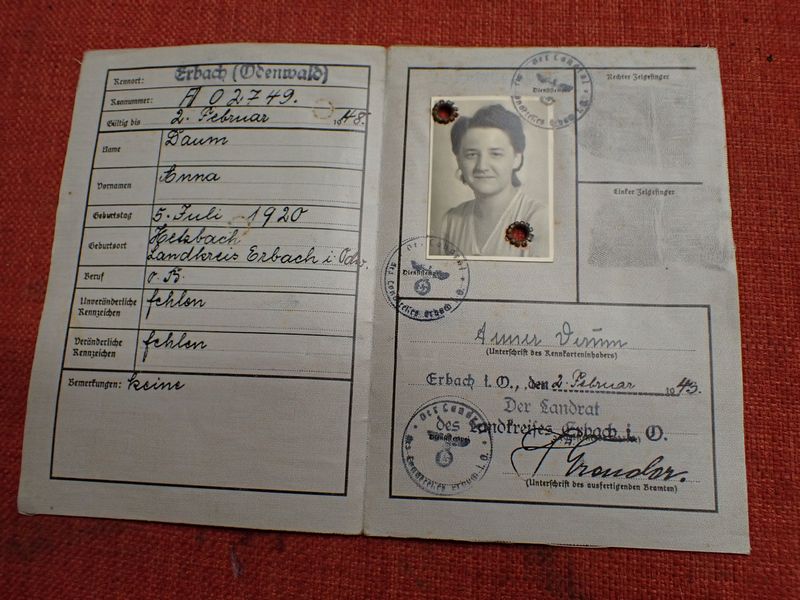 Kennort: Erbach (Odenwald)
Kennummer: A 02749.
Gültig bis 2. Februar 1948.
Name Daum
Vornamen Anna
Geburtstag 5. Juli 1920
Geburtsort Hetzbach
Landkreis Erbach i. Odw.
Beruf o. B.
Unveränderliche Kennzeichen fehlen
Veränderliche Kennzeichen fehlen
Bemerkungen: keine
Der Landrat
des Landkreises Erbach i. O.
Dienststempel
Rechter Zeigefinger
Linker Zeigefinger
Der Landrat
des Landkreises Erbach i. O.
Dienststempel
Anna Daum
(Unterschrift des Kennkarteninhabers)
Erbach i. O., den 2. Februar 1943.
Der Landrat
des Landkreises Erbach i. O.
(Unterschrift des ausfertigenden Beamten)
Der Landrat
des Landkreises Erbach i. O.
Dienststempel